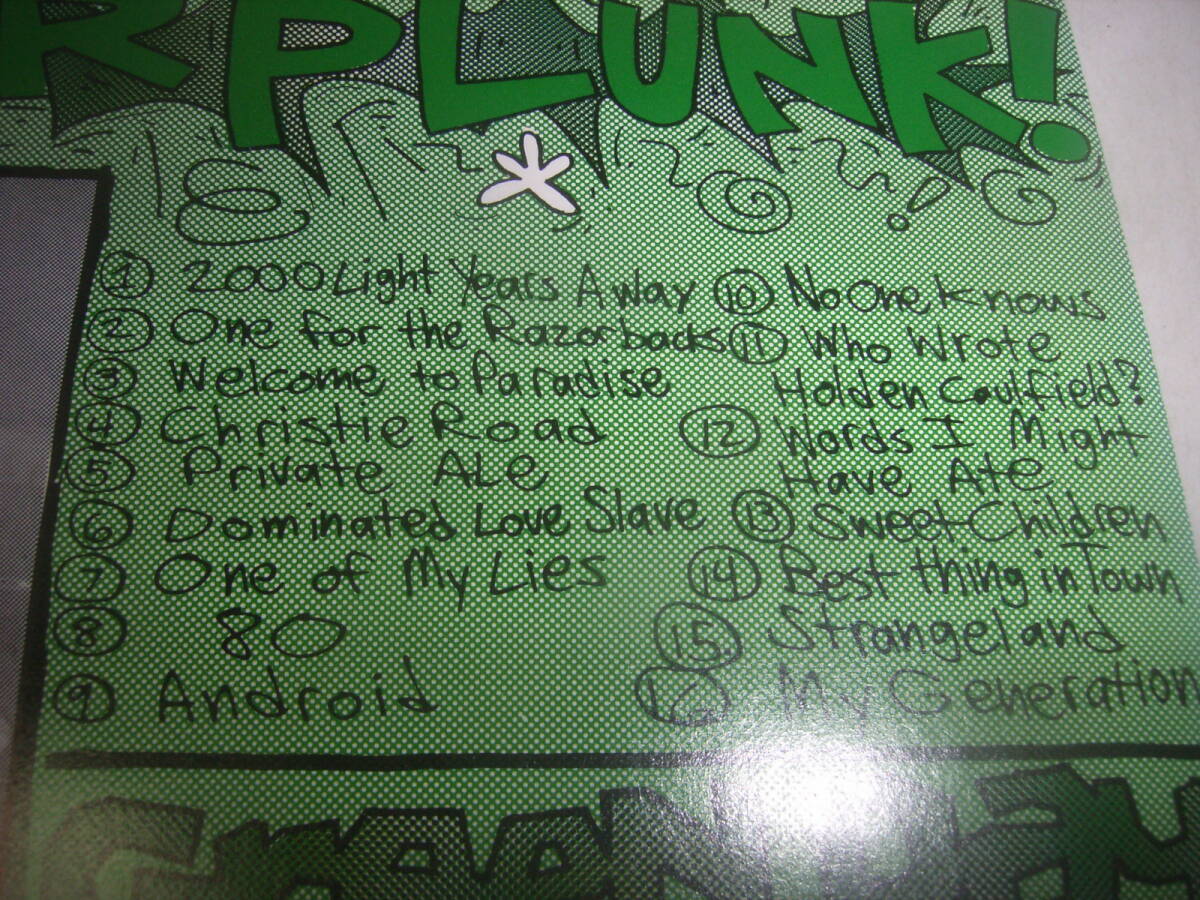 RPLUNK!
*
1 2000 Light Years Away
2 One for the Razorbacks
3 Welcome to Paradise
4 Christie Road
5 Private ALe
6 Dominated Love Slave
7 One of My Lies
8 80
9 Android
10 No One Knows
11 Who Wrote
Holden Caulfield?
12 Words I Might
Have Ate
13 Sweet Children
14 Best thing in Town
15 Strangeland
16 My Generation
Green Day